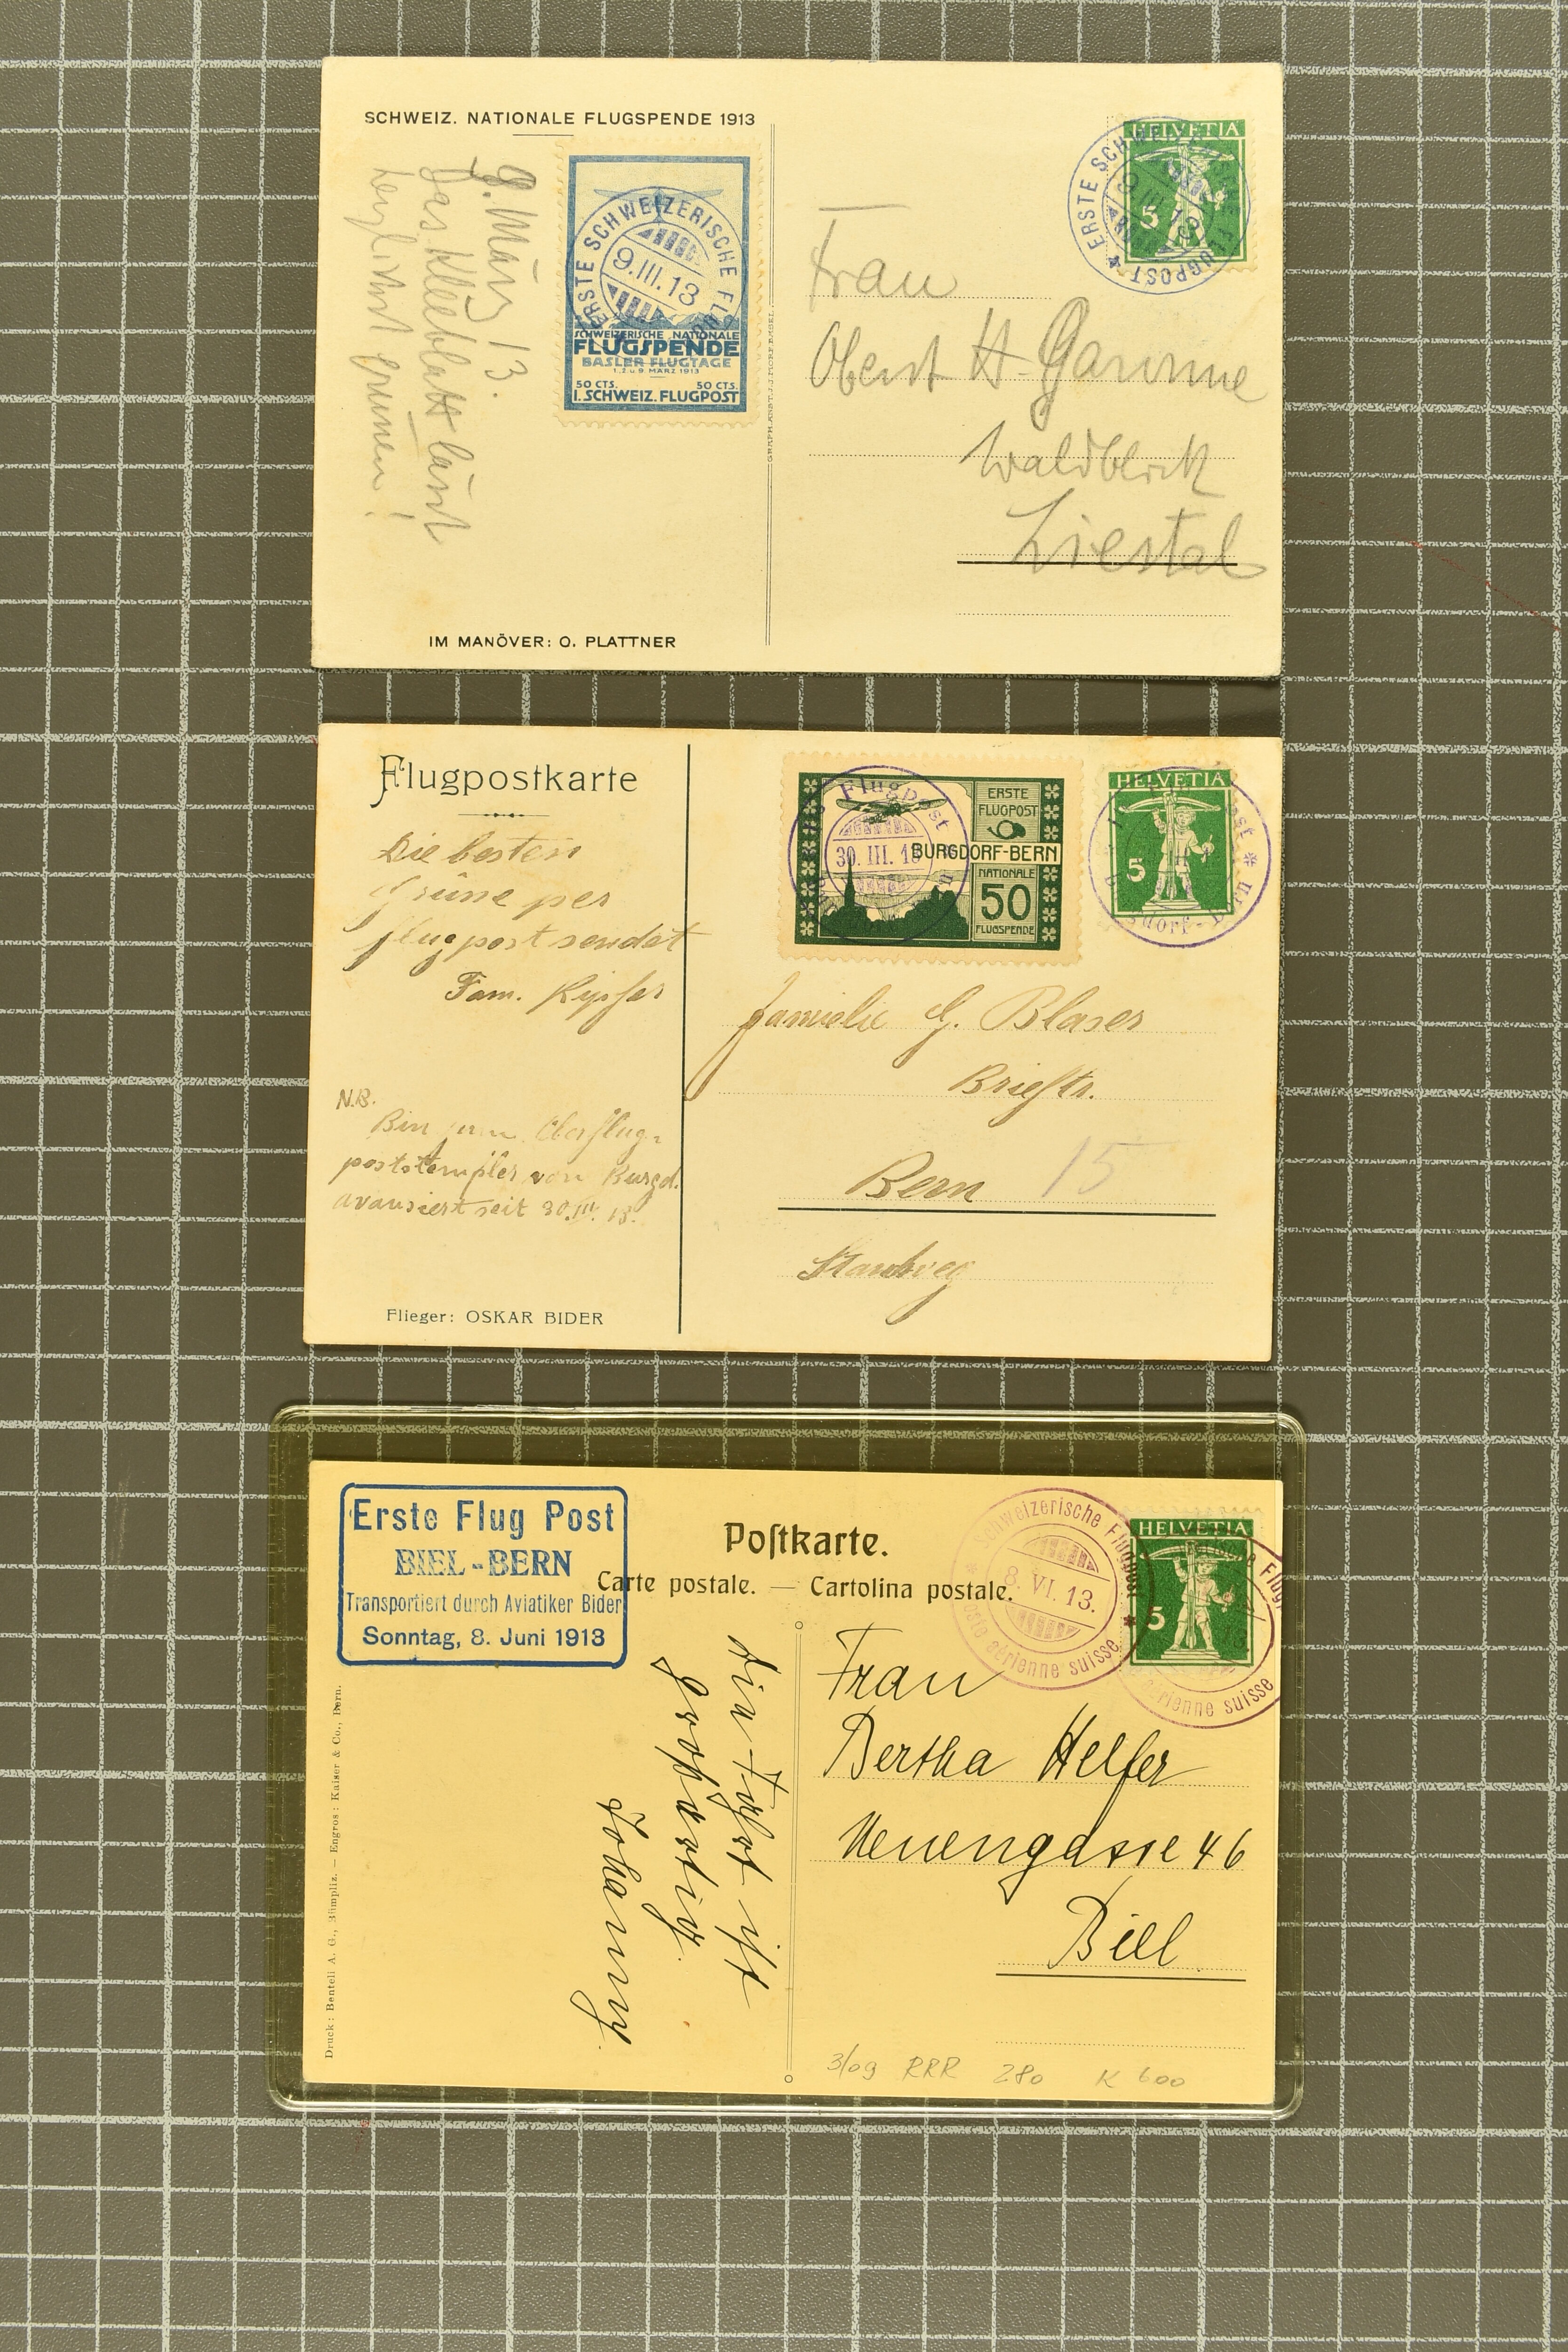 SCHWEIZ. NATIONALE FLUGSPENDE 1913
9. März 13.
Das Kleeblatt lässt
herzlichst grüssen!
ERSTE SCHWEIZERISCHE FLUG
9.III.13
SCHWEIZERISCHE NATIONALE
FLUGSPENDE
BASLER FLUGTAGE
1. 2. u. 9. MÄRZ 1913
50 CTS. 50 CTS.
I. SCHWEIZ. FLUGPOST
IM MANÖVER: O. PLATTNER
HELVETIA
5
ERSTE SCHWEIZ FLUGPOST
9.III.13
Frau
Oberst H.
Waldblick
Liestal
Flugpostkarte
Die besten
Grüsse per
flugpost sendet
Fam. Kipfer
N.B.
Bin Oberflug-
poststempler von Burgd.
avansiert seit 30.III. 13.
Flieger: OSKAR BIDER
Flugpost
30. III. 13
ERSTE
FLUGPOST
BURGDORF-BERN
NATIONALE
50
FLUGSPENDE
HELVETIA
5
Familie G. Blaser
Brieftr.
Bern 15
Erste Flug Post
BIEL-BERN
Transportiert durch Aviatiker Bider
Sonntag, 8. Juni 1913
Postkarte.
Carte postale. — Cartolina postale.
Schweizerische Flugpost
8. VI. 13.
Poste aérienne suisse
HELVETIA
5
Flug
aérienne suisse
Die Fahrt ist
großartig.
Johanny.
Frau
Bertha Helfer
Neuengasse 46
Biel.
Druck: Benteli A. G., Bümpliz. — Engros: Kaiser & Co., Bern.
3/09 RRR 280 K 600